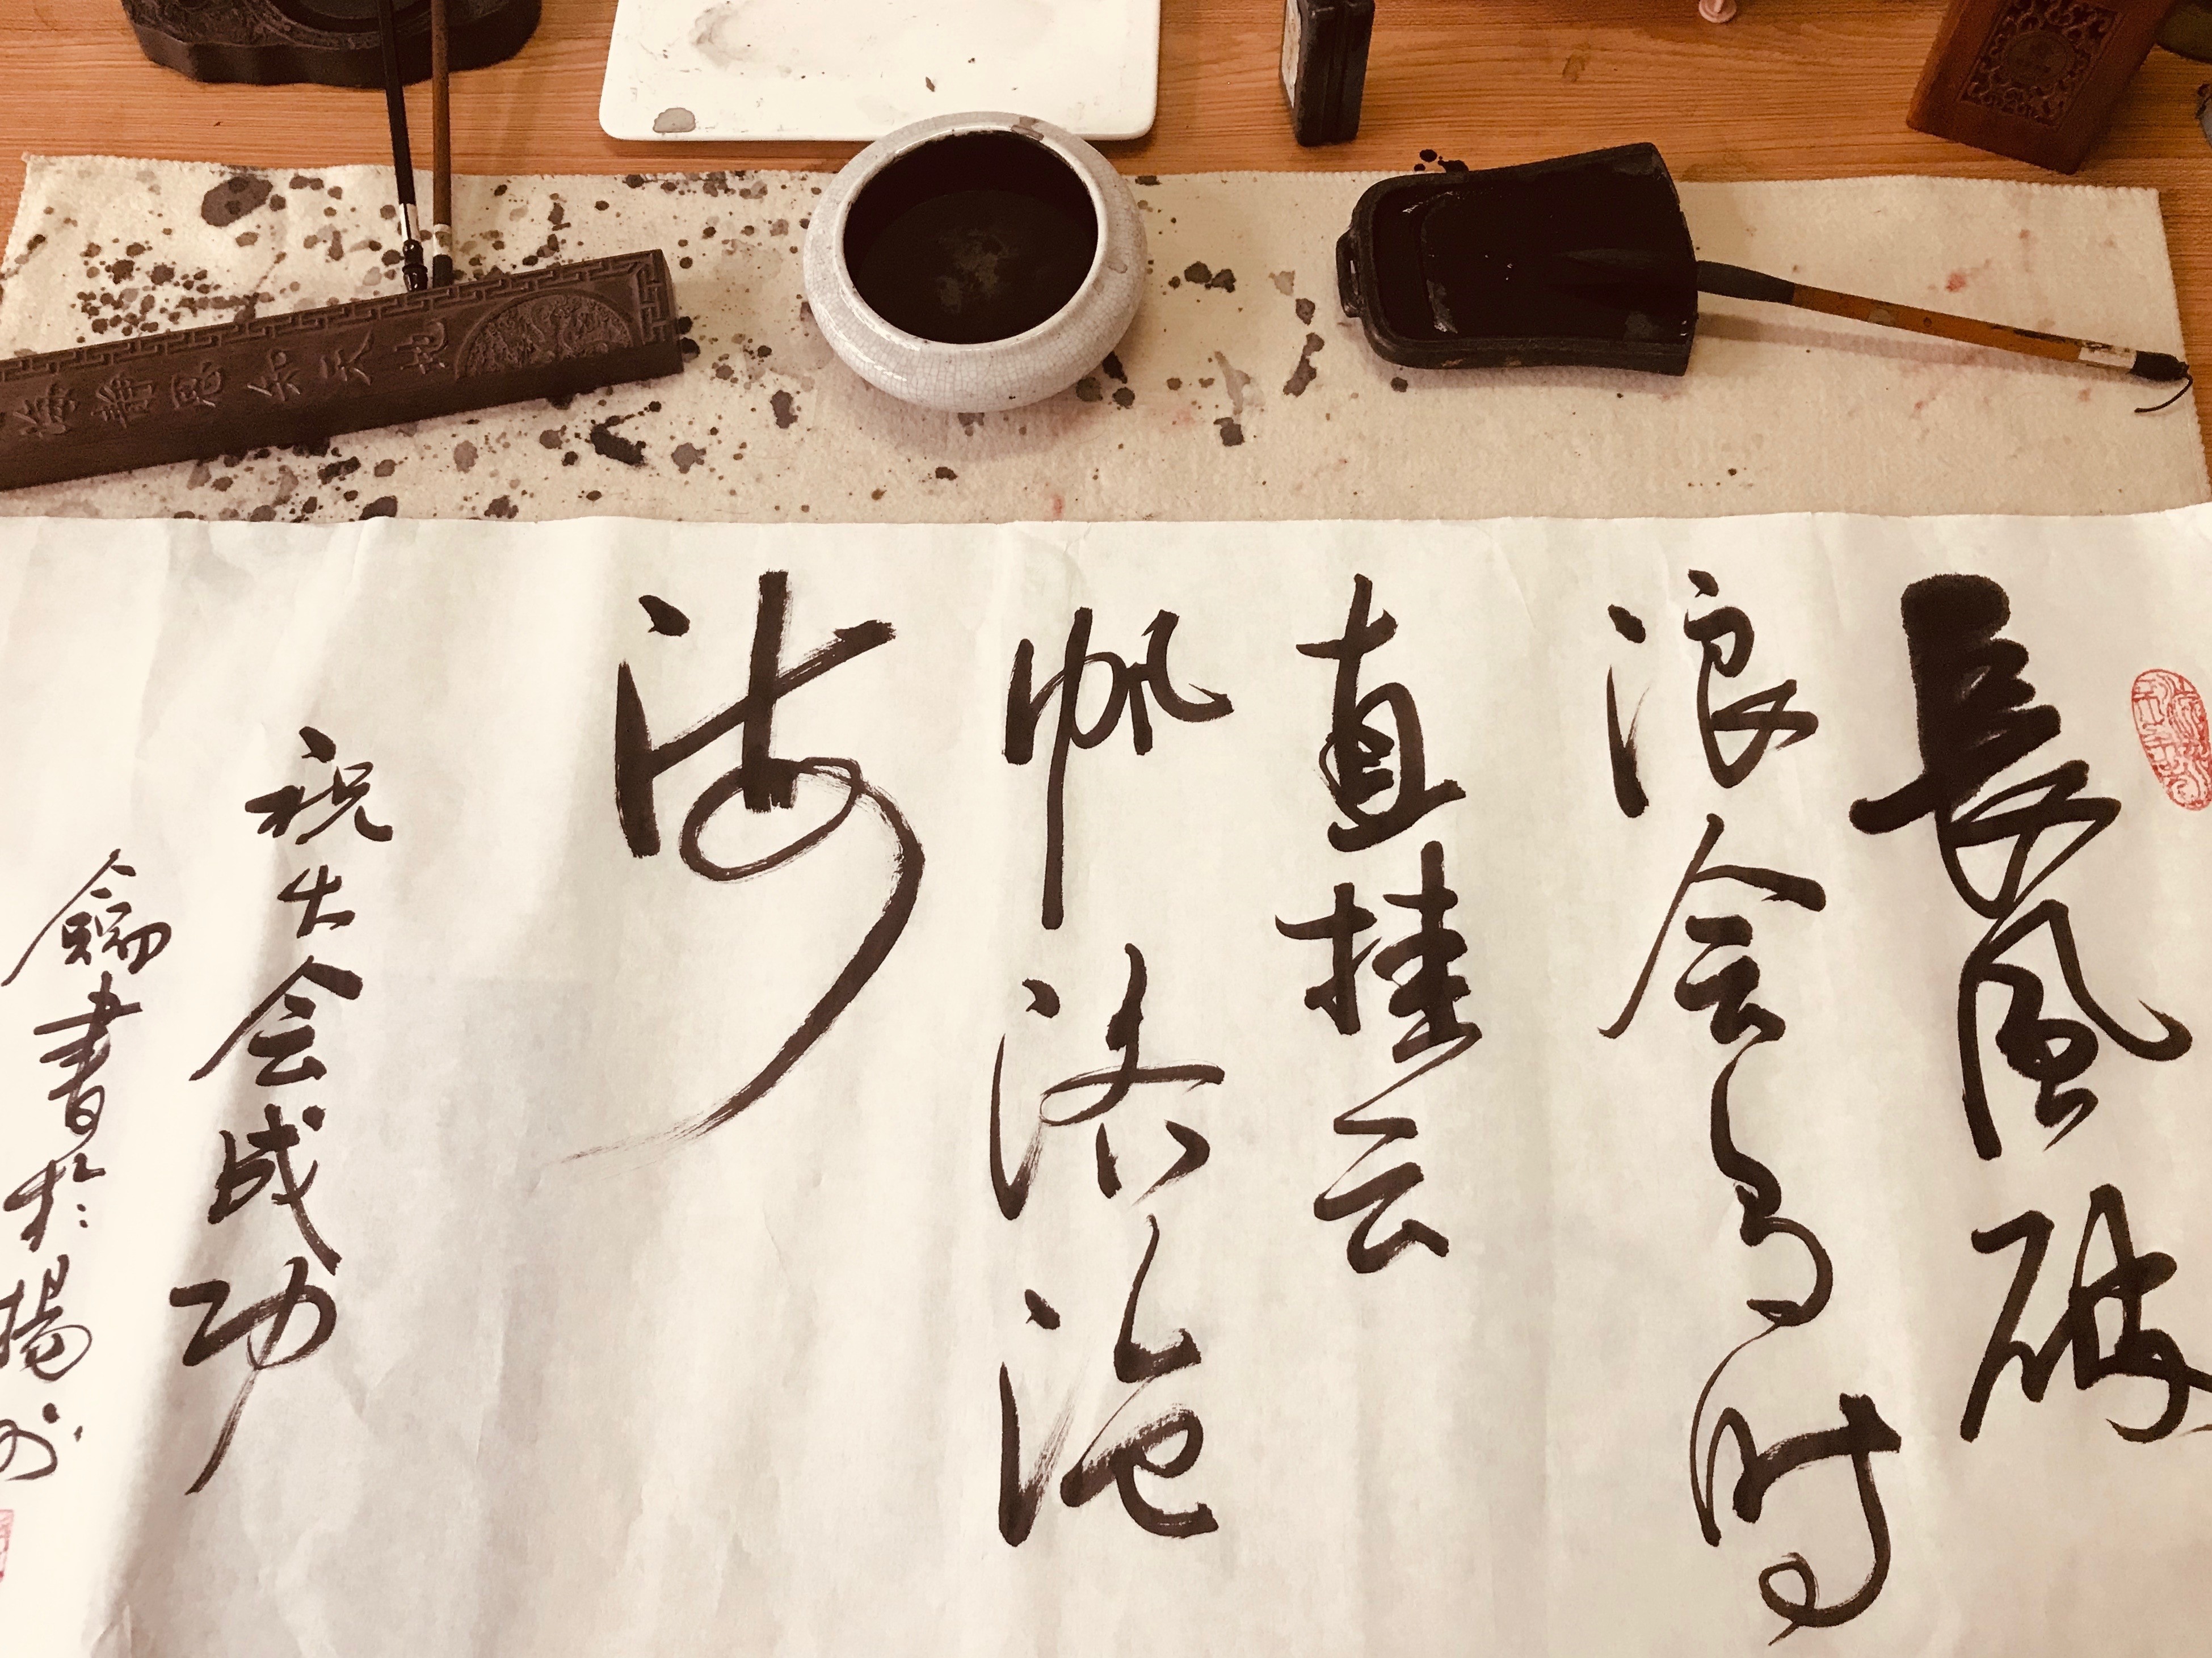 静思知天地
長風破
浪会有时
直挂云
帆济沧
海
祝大会成功
書於揚州